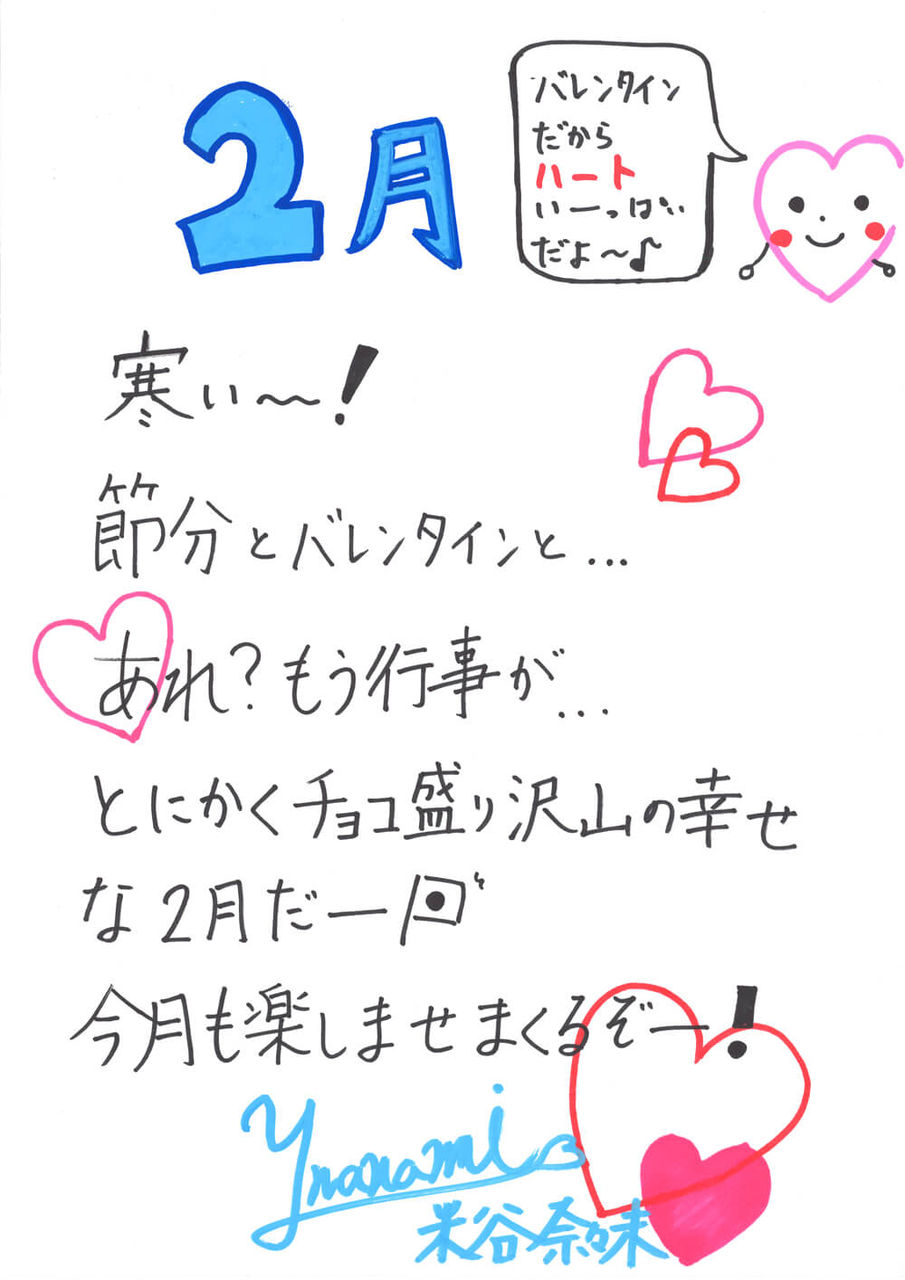 2月
バレンタイン
だから
ハート
いーっぱい
だよ〜♪
寒い〜!
節分とバレンタインと...
あれ?もう行事が...
とにかくチョコ盛り沢山の幸せ
な2月だー
今月も楽しませまくるぞー!
Ynanami
米谷奈々未